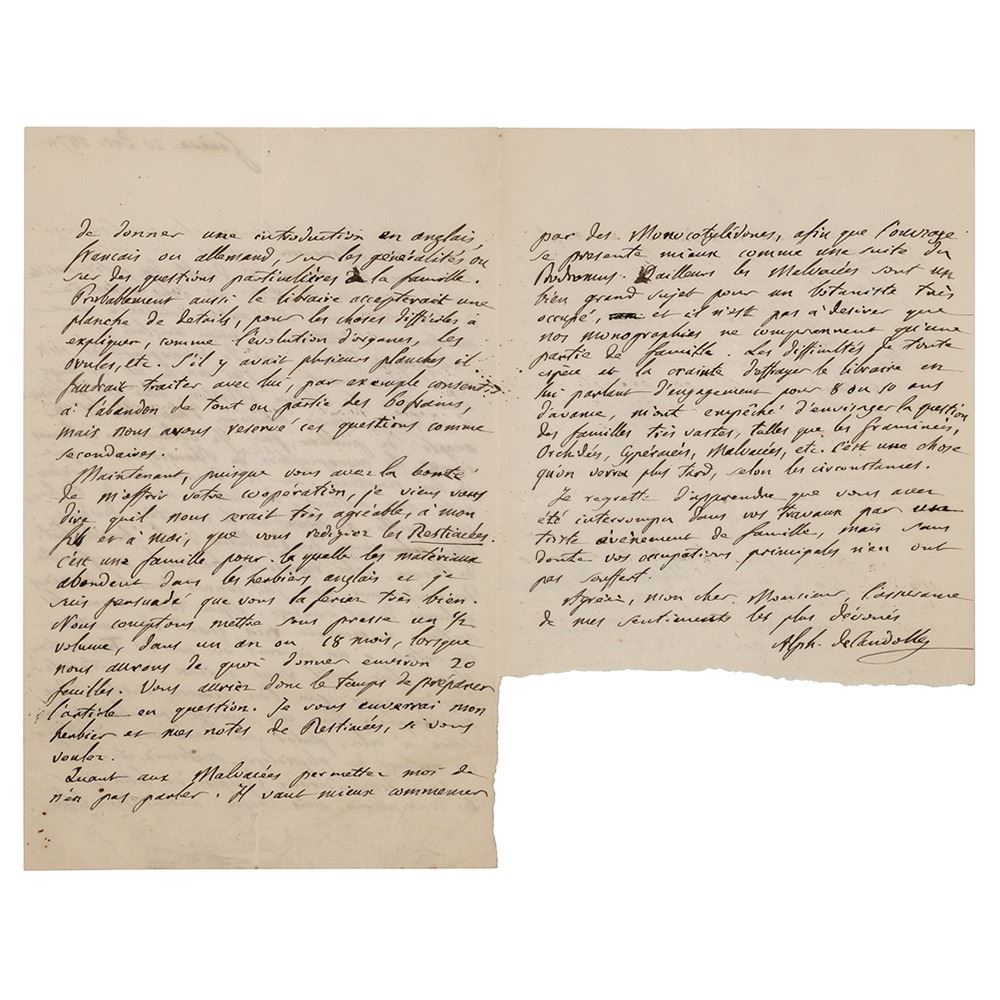 de donner une introduction en anglais,
francais ou allemand, sur les généralités ou
sur des questions particulières à la famille.
Probablement aussi le libraire accepterait une
planche de details, pour les choses difficiles à
expliquer, comme l'évolution d'organes, les
ovules, etc. S'il y avait plusieurs planches il
faudrait traiter avec lui, par exemple consentir
à l'abandon de tout ou partie des 60 frans,
mais nous avons reservé ces questions comme
secondaires.
Maintenant, puisque vous avez la bonté
de m'offrir votre coopération, je viens vous
dire qu'il nous serait très agréables à mon
fils et à moi, que vous redigiez les Restiacées.
c'est une famille pour la quelle les matériaux
abondent dans les herbiers anglais et je
suis persuadé que vous la feriez très bien.
Nous comptons mettre sous presse un 1/2
volume, dans un an ou 18 mois, lorsque
nous aurons de quoi donner environ 20
feuilles. Vous auriez donc le temps de préparer
l'article en question. Je vous enverrai mon
herbier et mes notes de Restiacées, si vous
voulez.
Quant aux Malvacées permettez moi de
n'en pas parler. Il vaut mieux commencer
par des Monocotylédones, afin que l'ouvrage
se presente mieux comme une suite du
Prodromus. D'ailleurs les Malvacées sont un
bien grand sujet pour un botaniste très
occupé, et il n'est pas à desirer que
nos monographies ne comprennent qu'une
partie de famille. Les difficultés de toute
espèce et la crainte d'effrayer le libraire en
lui parlant d'engagement pour 8 ou 10 ans
d'avance, m'ont empêché d'envisager la question
des familles très vastes, telles que les Graminées,
Orchidées, Cyperacées, Malvacées, etc. C'est une chose
qu'on verra plus tard, selon les circonstances.
Je regrette d'apprendre que vous avez
été interrompu dans vos travaux par un
triste évènement de famille, mais sans
doute vos occupations principales n'en ont
pas souffert.
Agréez, mon cher Monsieur, l'assurance
de mes sentiments les plus dévoués
Alph. de Candolle